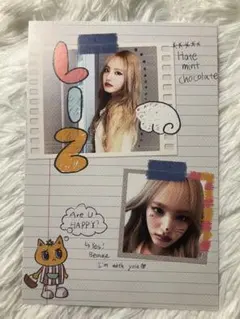 LIZ
Hate
mint
chocolate
Are U
HAPPY?
Yes!
Because
I'm with you